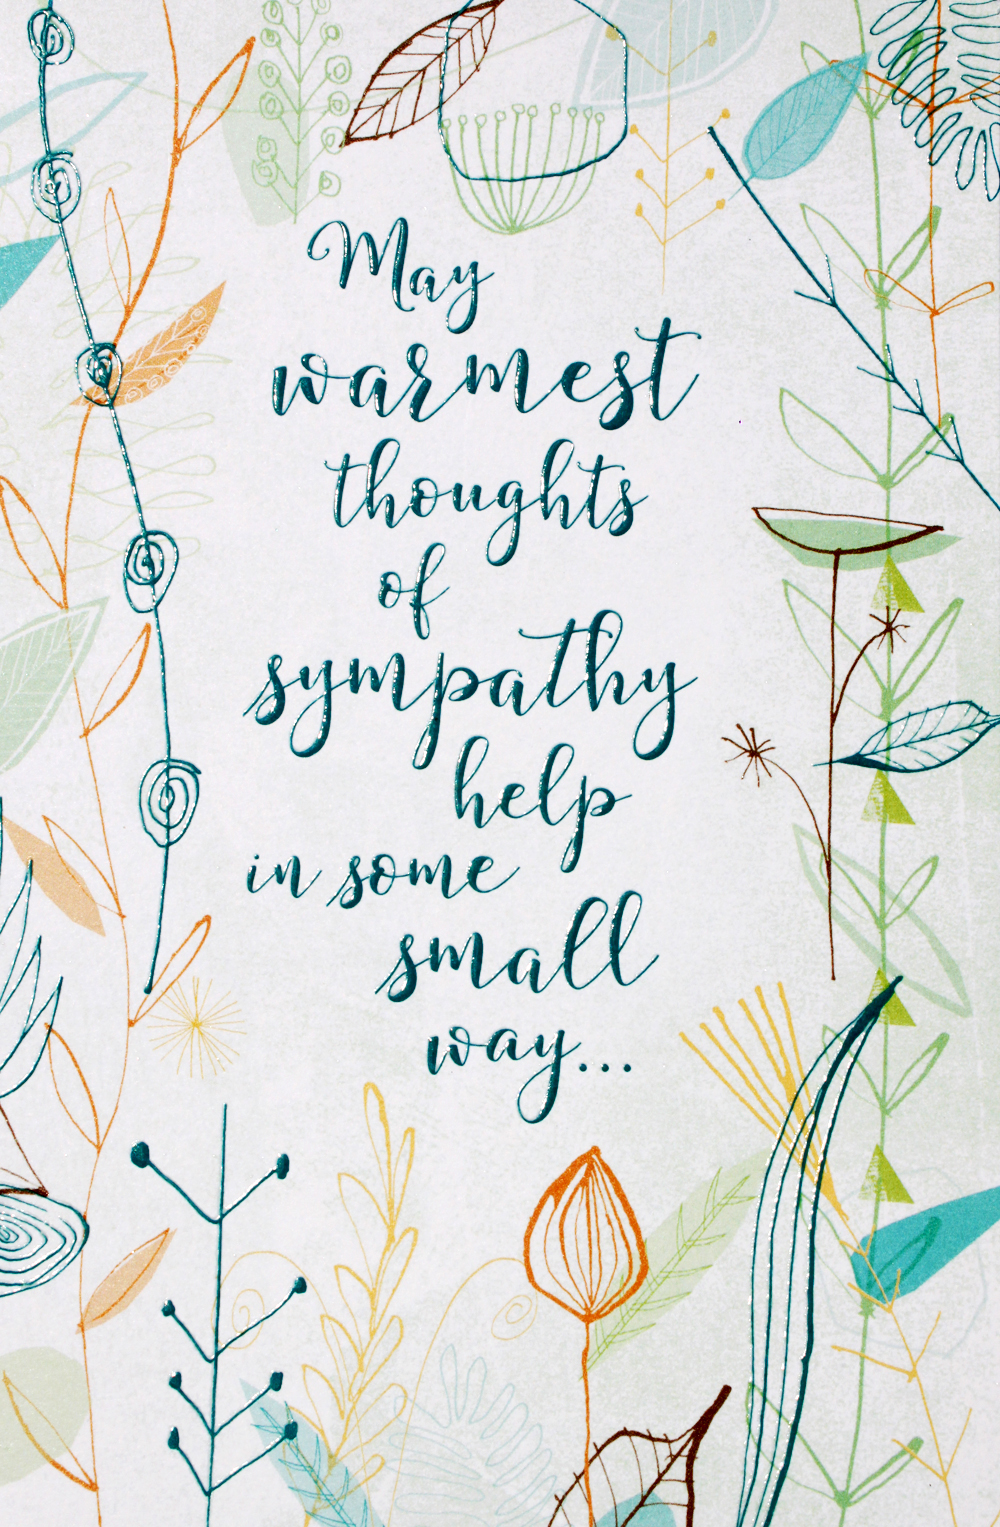 May
warmest
thoughts
of
sympathy
help
in some
small
way...